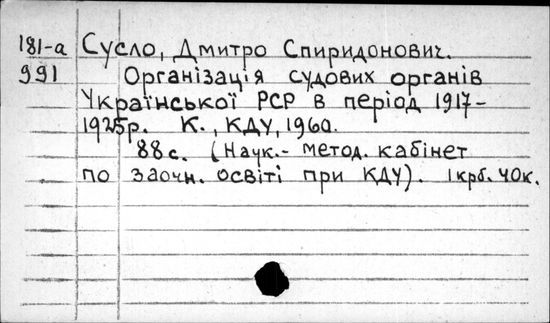 181-а Сусло, Дмитро Спиридонович.
991 Організація судових органів
Української РСР в період 1917-
1925р. К., КДУ, 1960.
88с. (Наук.- метод. кабінет
по заочн. освіті при КДУ). 1крб. 40к.